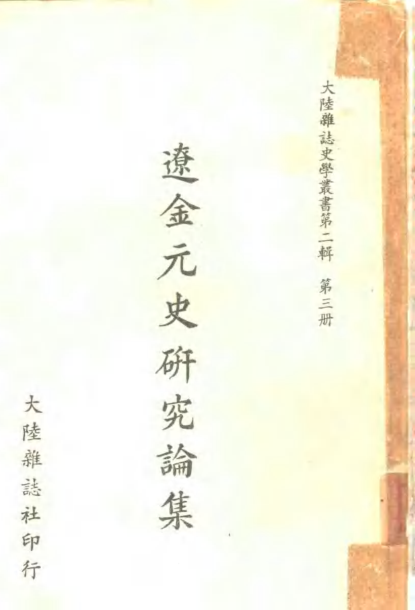 大陸雜誌史學叢書第二輯　第三册
遼金元史研究論集
大陸雜誌社印行